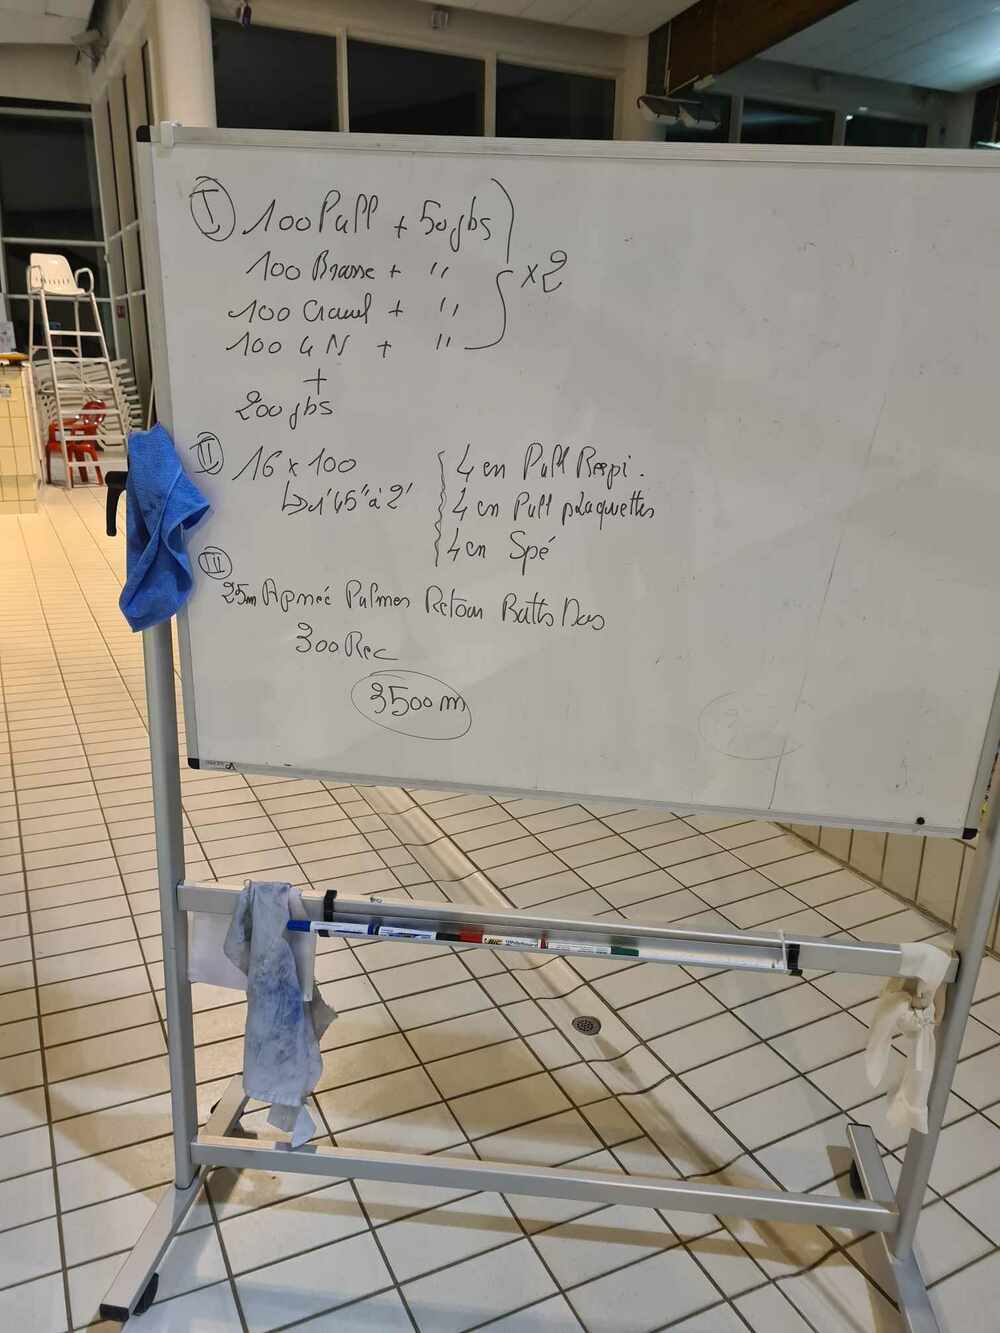 I 100 Pull + 50 jbs
100 Brasse + "
x 2
100 Crawl + "
100 4 N + "
+
200 jbs
II 16 x 100
↳ 1'45" à 2'
4 en Pull Respi.
4 en Pull plaquettes
4 en Spé
III
25m Apneé Palmes Retour Batts Dos
300 Rec
3500 m